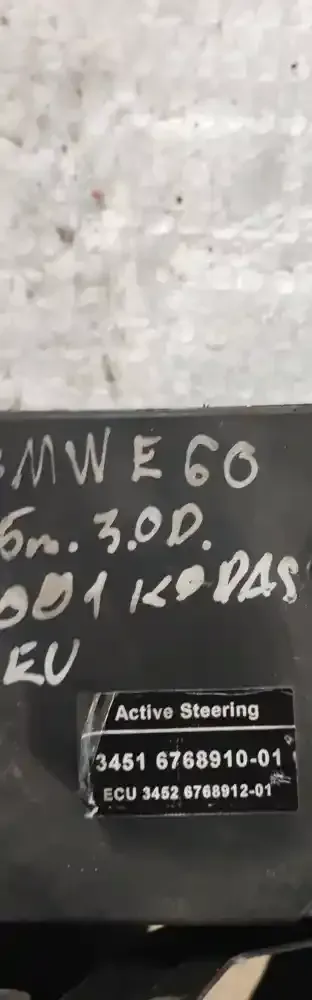 BMW E60
6m. 3.0D.
001 KODAS
EU
Active Steering
3451 6768910-01
ECU 3452 6768912-01